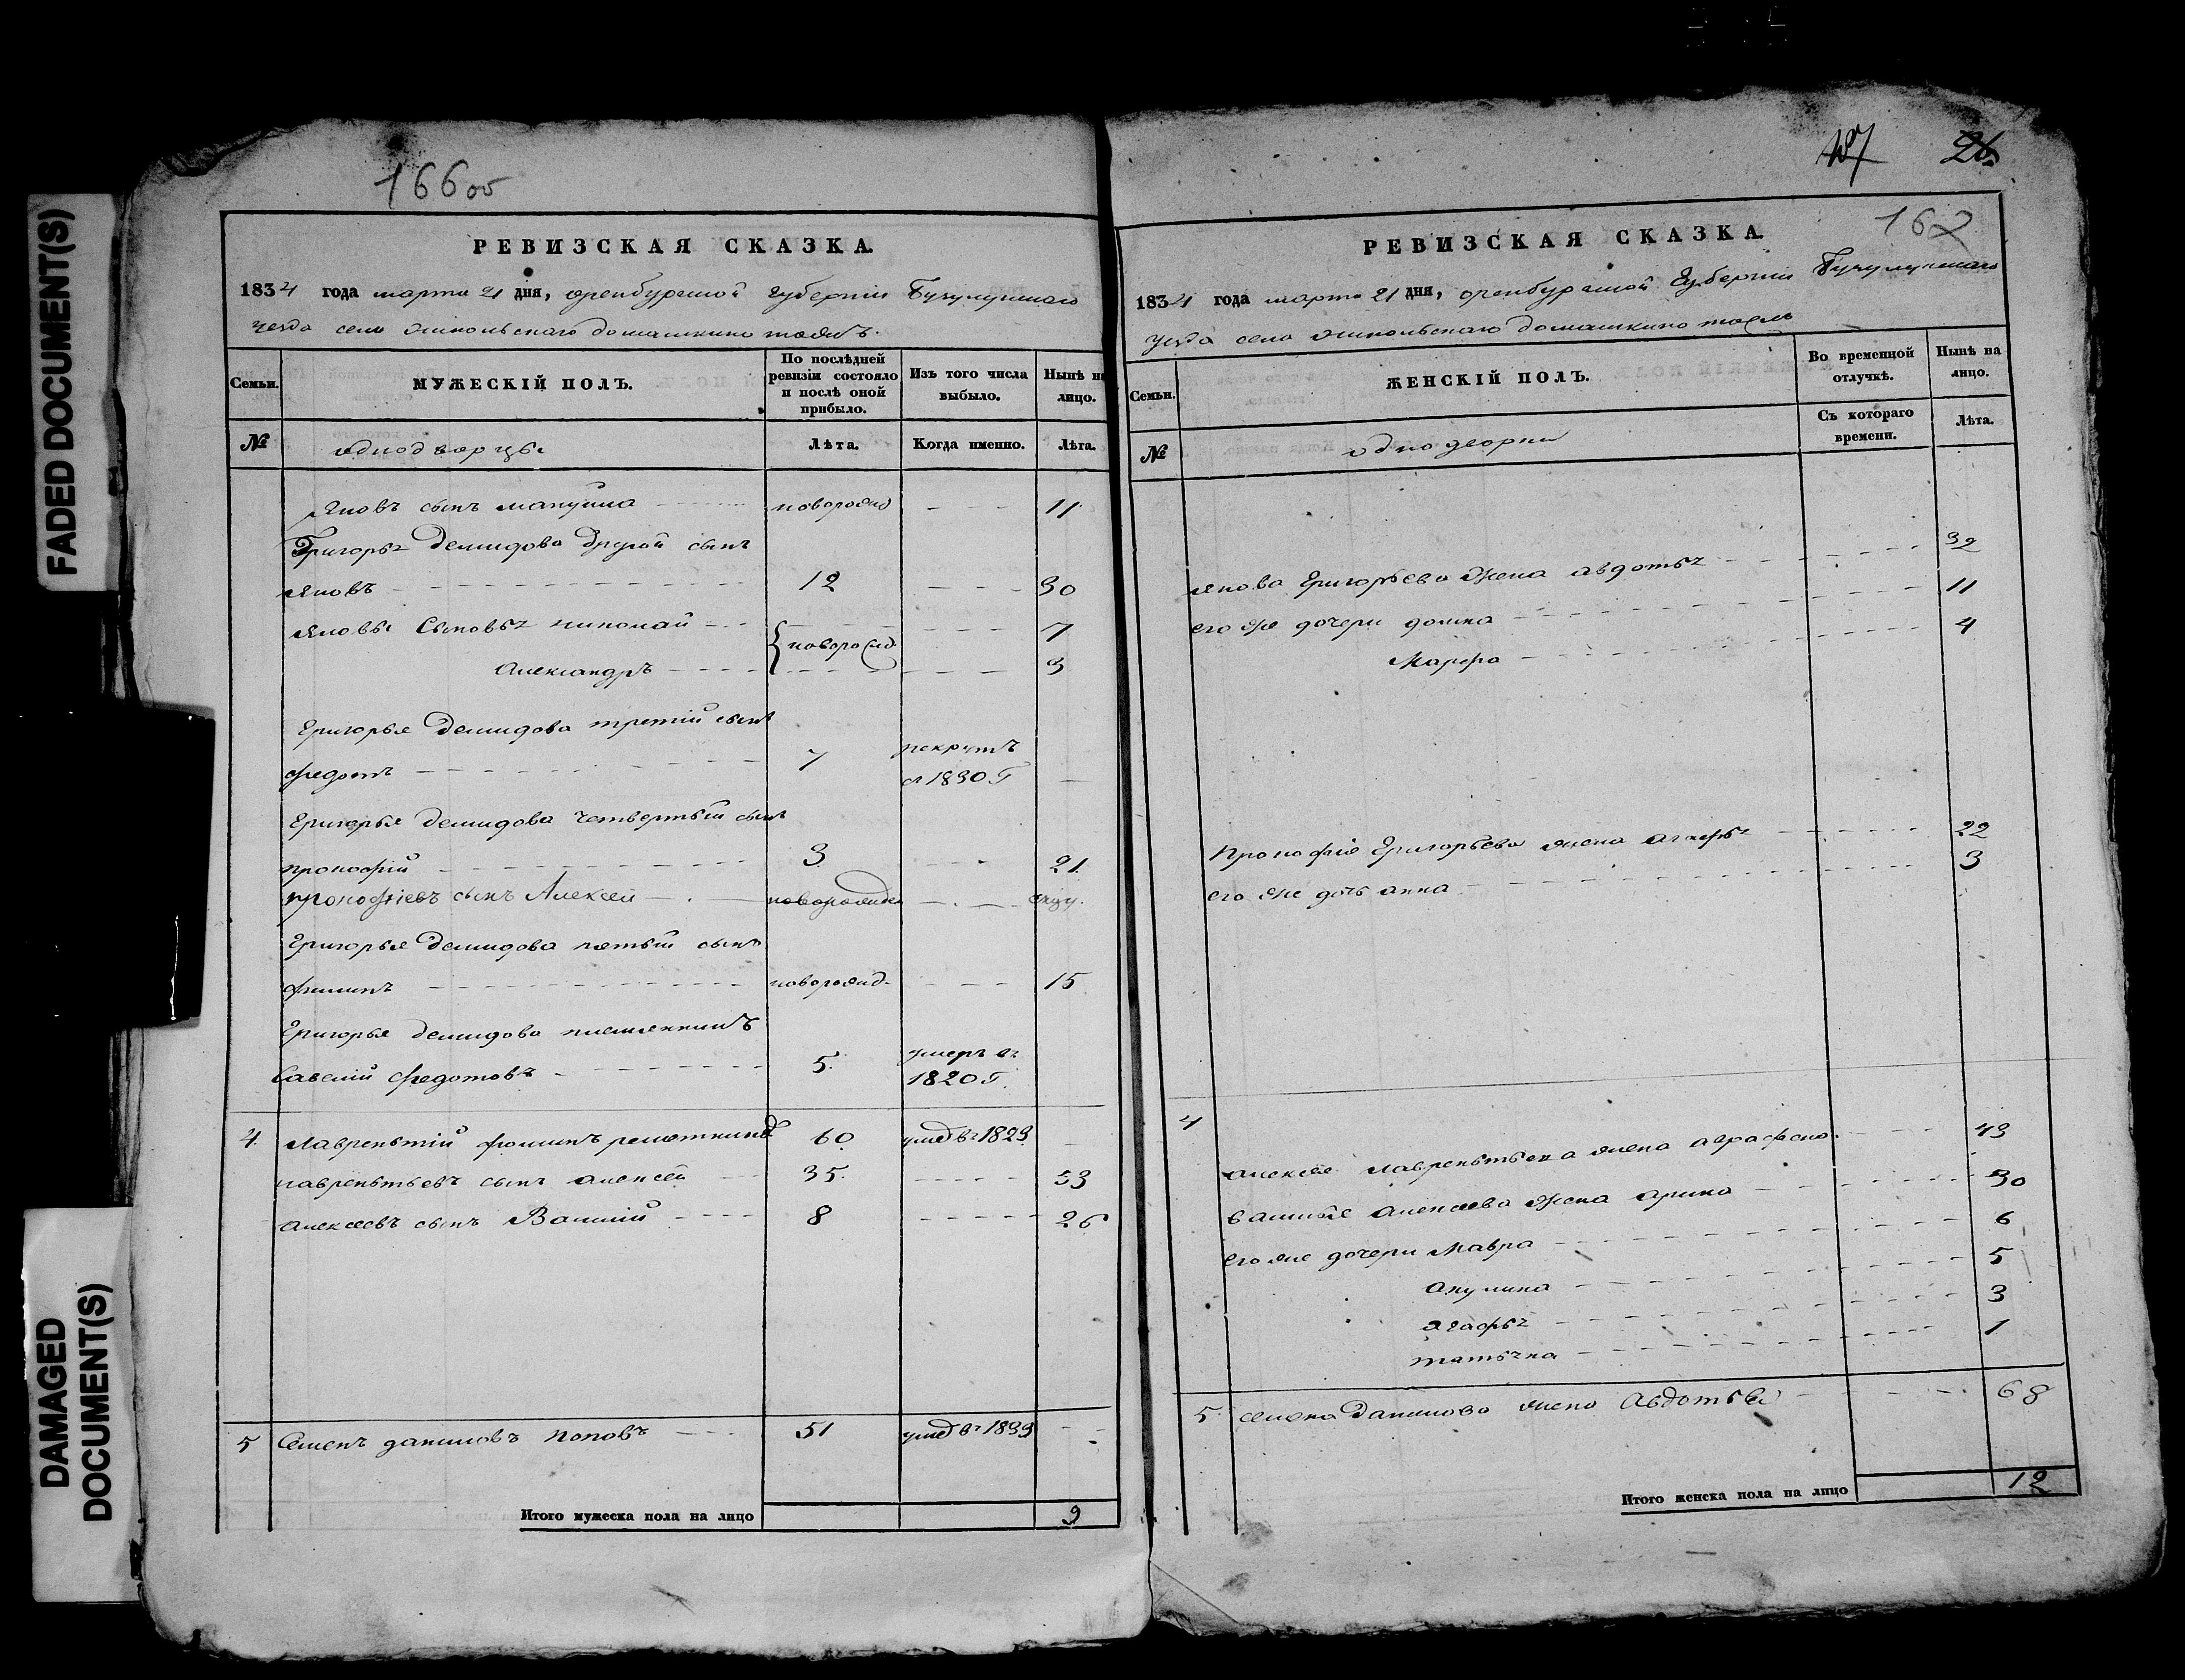 FADED DOCUMENT(S)
DAMAGED
DOCUMENT(S)
166 об
РЕВИЗСКАЯ СКАЗКА.
1834 года марта 21 дня, оренбургской губернии Бузулукского
уезда села Домашкино тожъ
Семьи.
МУЖЕСКІЙ ПОЛЪ.
По послѣдней ревизіи состояло и послѣ оной прибыло.
Изъ того числа выбыло.
Нынѣ на лицо.
№ однодворцы Лѣта. Когда именно. Лѣта.
Яковъ сынъ новорожд 11
Григорья Демидова другой сынъ
Яковъ 12 30
Яковы сыновья николай 7
новорожд
Александръ 3
Григорья Демидова третий сынъ
федотъ 7 рекрутъ
в 1830 г
Григорья демидова четвертый сынъ
прокофій 3 21
прокофіевъ сынъ Алексей новорожден
Григорья Демидова пятый сынъ
филипъ новорожд 15
Григорья демидова племянникъ
Савелий федотовъ 5 умеръ въ
1820 г.
4 Лаврентий фоминъ решоткинъ 60 умер въ 1829
лаврентьевъ сынъ алексей 35 53
алексеевъ сынъ Василий 8 26
5 Семенъ даниловъ поповъ 51 умер въ 1833
Итого мужеска пола на лицо 9
187 26
167
РЕВИЗСКАЯ СКАЗКА.
1834 года марта 21 дня, оренбургской губернии Бузулукского
уезда села Домашкино тожъ
Семьи.
ЖЕНСКІЙ ПОЛЪ.
Во временной отлучкѣ.
Нынѣ на лицо.
№ однодворки Съ котораго времени. Лѣта.
Якова Григорьева жена авдотья 32
его же дочери домна 11
Марфа 4
Прокофия Григорьева жена агафья 22
его же дочь анна 3
4
алексея лаврентьева жена аграфена 43
василья алексеева жена арина 30
его же дочери Мавра 6
акулина 5
агафья 3
татьяна 1
5 семена данилова жена Авдотья 68
Итого женска пола на лицо 12